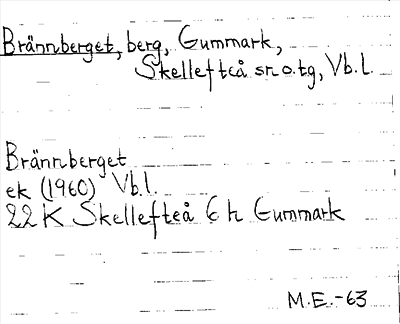 Brännberget, berg, Gummark,
Skellefteå sn o. tg, Vb.l.
Brännberget
ek (1960) Vb.l.
22 K Skellefteå 6 h Gummark
M.E.-63